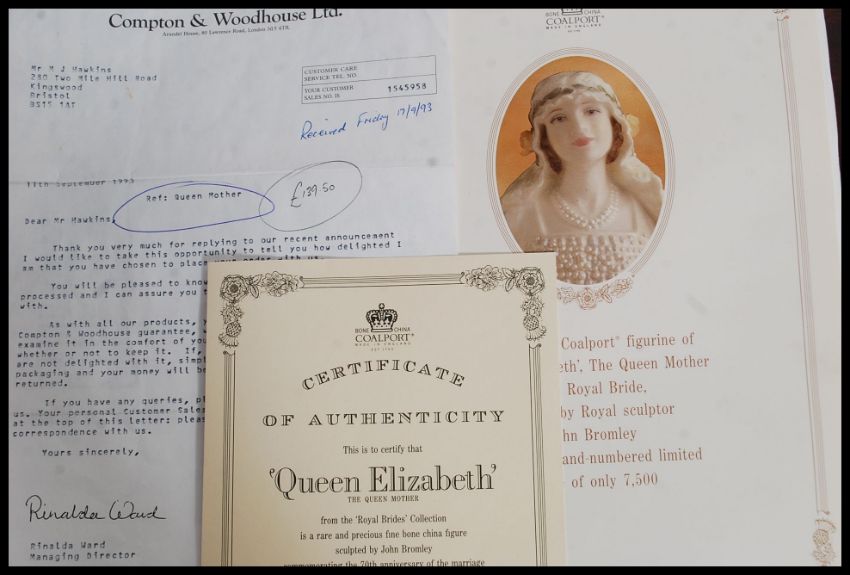 Compton & Woodhouse Ltd.
Arundel House, 80 Lawrence Road, London N15 4TL
Mr M J Hawkins
280 Two Mile Hill Road
Kingswood
Bristol
BS15 1AT
CUSTOMER CARE
SERVICE TEL NO.
YOUR CUSTOMER
SALES NO. IS
1545958
Received Friday 17/9/93
11th September 1993
Ref: Queen Mother
£139.50
Dear Mr Hawkins,
Thank you very much for replying to our recent announcement
I would like to take this opportunity to tell you how delighted I
am that you have chosen to place your order with us.
You will be pleased to know
processed and I can assure you
with.
As with all our products,
Compton & Woodhouse guarantee,
examine it in the comfort of you
whether or not to keep it. If,
are not delighted with it, simpl
packaging and your money will be
returned.
If you have any queries, pl
us. Your personal Customer Sales
at the top of this letter: pleas
correspondence with us.
Yours sincerely,
Rinalda Ward
Rinalda Ward
Managing Director
BONE CHINA
COALPORT®
MADE IN ENGLAND
EST 1750
CERTIFICATE
OF AUTHENTICITY
This is to certify that
'Queen Elizabeth'
THE QUEEN MOTHER
from the 'Royal Brides' Collection
is a rare and precious fine bone china figure
sculpted by John Bromley
commemorating the 70th anniversary of the marriage
BONE CHINA
COALPORT®
MADE IN ENGLAND
EST 1750
Coalport® figurine of
eth', The Queen Mother
Royal Bride,
by Royal sculptor
hn Bromley
and-numbered limited
of only 7,500